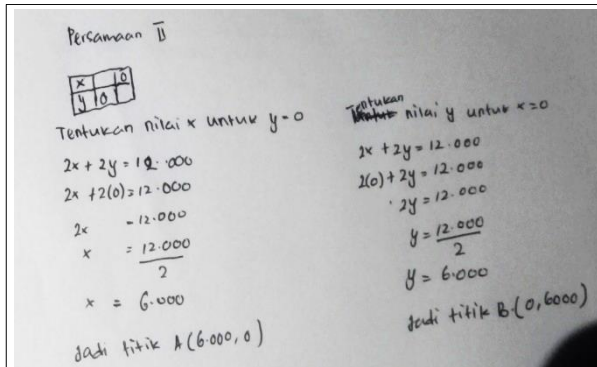 Persamaan II
x 0
y 0
Tentukan nilai x untuk y=0
2x + 2y = 12.000
2x + 2(0) = 12.000
2x = 12.000
x = 12.000
2
x = 6.000
Jadi titik A (6.000, 0)
Tentukan
nilai y untuk x=0
2x + 2y = 12.000
2(0) + 2y = 12.000
2y = 12.000
y = 12.000
2
y = 6.000
Jadi titik B. (0, 6000)